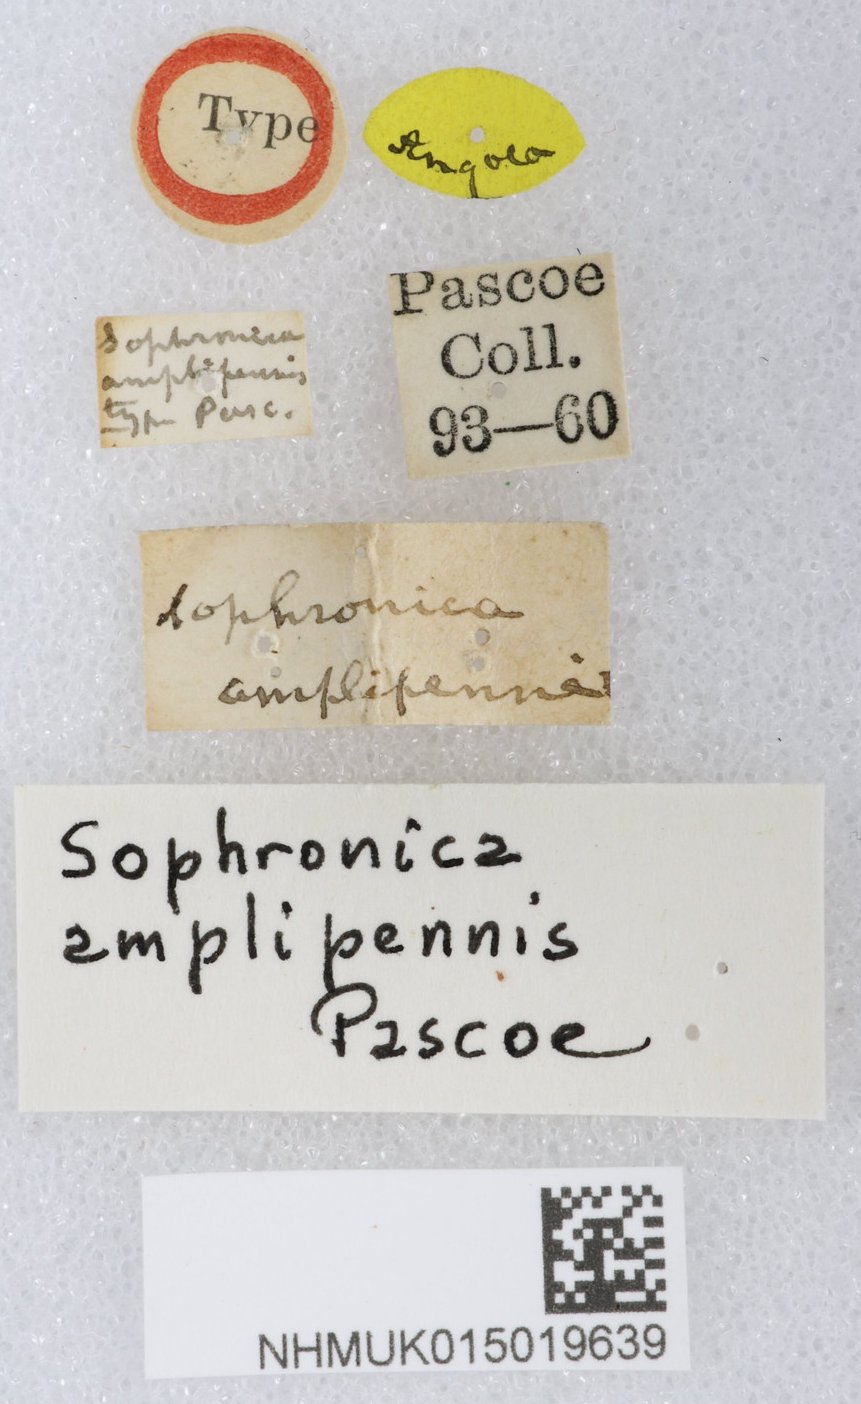 Type
Angola
Sophronica
amplipennis
type Pasc.
Pascoe
Coll.
93—60
Sophronica
amplipennis
Sophronica
amplipennis
Pascoe
NHMUK015019639